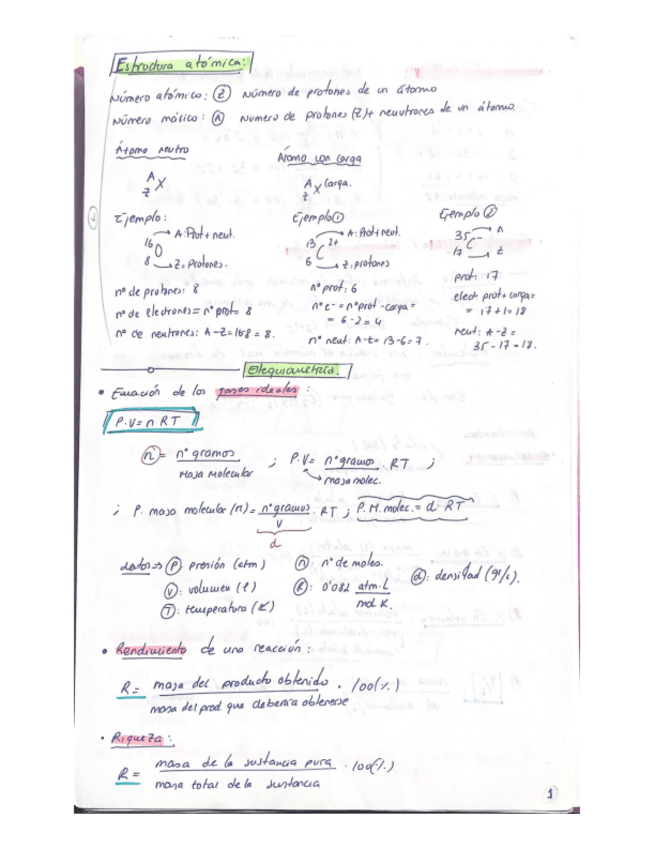 Estructura atómica:
Número atómico: Z Número de protones de un átomo
Número másico: A Numero de protones (Z) + neuutrones de un átomo
Átomo neutro
Átomo con carga
A
Z X
A X carga.
Z
Ejemplo:
16 O → A: Prot + neut.
8 → Z: Protones.
nº de protones: 8
nº de electrones = nº prot = 8
nº de neutrones: A-Z=168 = 8.
Ejemplo 1
13 C 2+ → A: Prot + neut.
6 → Z: protones
nº prot: 6
nº e- = nº prot - carga =
= 6-2 = 4
nº neut: A-Z= 13-6=7.
Ejemplo 2
35 C - → A
-17 → Z
prot: 17
elect: prot + carga =
= 17+1=18
neut: A-Z =
35-17=18.
Estequiometría.
• Ecuación de los gases ideales:
P.V= n RT
n = nº gramos
masa molecular
; P.V= nº gramos . RT ;
masa molec.
; P. masa molecular (n) = nº gramos . RT ; P.M. molec. = d. RT
V
d
datos => P: presión (atm) n: nº de moles. d: densidad (gr/L).
V: volumen (l) R: 0'082 atm.l
T: temperatura (K) mol K.
• Rendimiento de una reacción:
R = masa del producto obtenido . 100(%)
masa del prod que debería obtenerse
• Riqueza:
R = masa de la sustancia pura . 100(%)
masa total de la sustancia
1